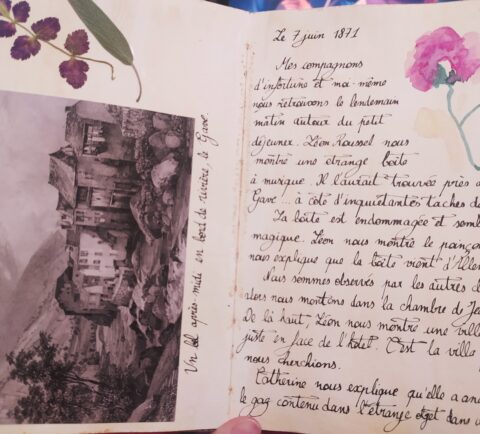 Un bel après-midi en bord de rivière, le Gave.
Le 7 juin 1871
Mes compagnons
d'infortune et moi-même
nous retrouvons le lendemain
matin autour du petit
déjeuner. Léon Roussel nous
montre une étrange boîte
à musique. Il l'aurait trouvée près d
Gave ... à côté d'inquiétantes taches de
La boîte est endommagée et semb
magique. Léon nous montre le poinço
nous explique que la boîte vient d'Allem
Nous sommes observés par les autres cl
alors nous montons dans la chambre de Je
De là haut, Léon nous montre une vill
juste en face de l'hôtel. C'est la villa
nous cherchions.
Catherine nous explique qu'elle a an
le gag contenu dans l'étrange objet dans